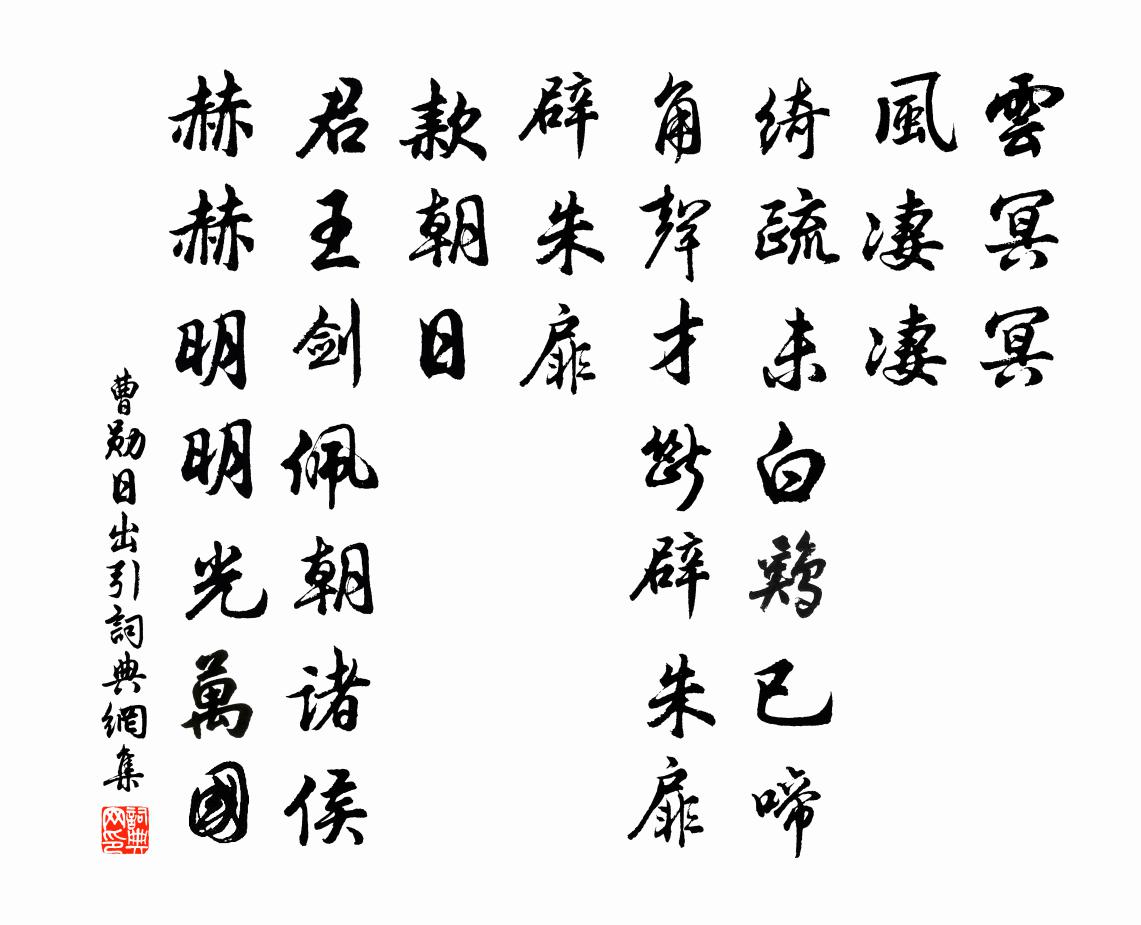 雲冥冥
風凄凄
綺疏未白鷄已啼
角聲才斷辟朱扉
辟朱扉
款朝日
君王劍佩朝諸侯
赫赫明明光萬國
曹勛日出引詞典網集
詞典网印